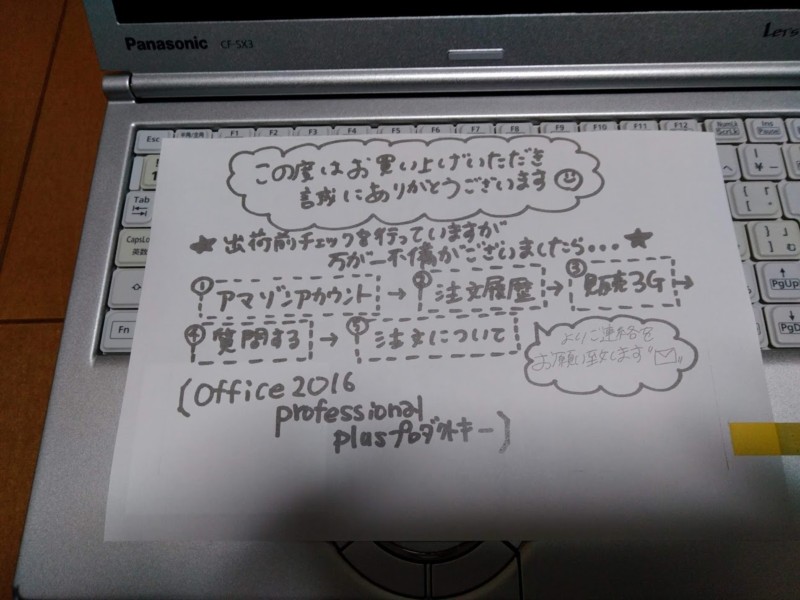 Panasonic CF-SX3
Let's
Esc F1 F2 F3 F4 F5 F6 F7 F8 F9 F10 F11 F12 NumLk ScrLk Ins Pause
Tab
CapsLo
英数
Fn
PgUp
PgD
この度はお買い上げいただき
誠にありがとうございます
★ 出荷前チェックを行っていますが
万が一不備がございましたら... ★
① アマゾンアカウント → ② 注文履歴 → ③ 販売3G →
④ 質問する → ⑤ 注文について
よりご連絡を
お願い致します
(Office 2016
professional
plusプロダクトキー)